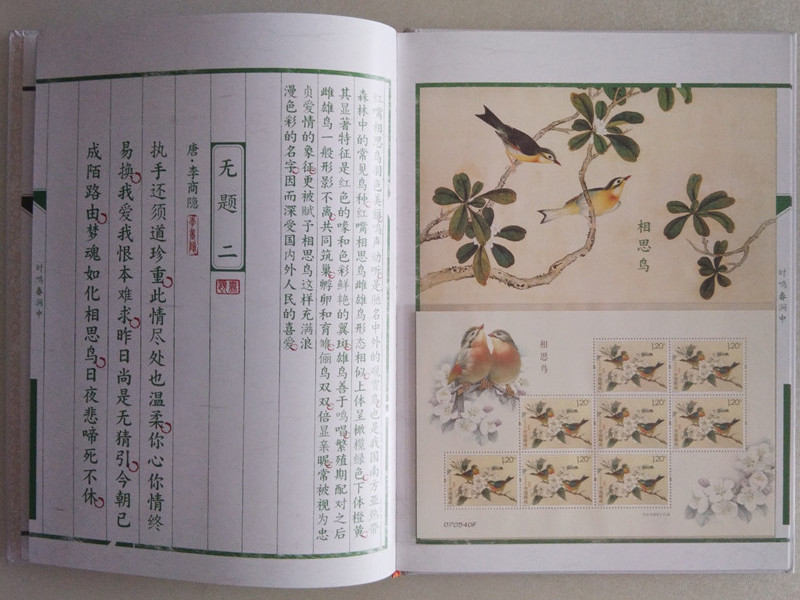 红嘴相思鸟羽色美丽鸣声动听是驰名中外的观赏鸟也是我国南方亚热带
森林中的常见鸟种红嘴相思鸟雌雄鸟形态相似上体呈橄榄绿色下体橙黄
其显著特征是红色的喙和色彩鲜艳的翼斑雄鸟善于鸣唱繁殖期配对之后
雌雄鸟一般形影不离共同筑巢孵卵和育雏俩鸟双双倍显亲昵常被视为忠
贞爱情的象征更被赋予相思鸟这样充满浪
漫色彩的名字因而深受国内外人民的喜爱
无题二
唐·李商隐
执手还须道珍重此情尽处也温柔你心你情终
易换我爱我恨本难求昨日尚是无猜引今朝已
成陌路由梦魂如化相思鸟日夜悲啼死不休
时鸣春涧中
相思鸟
时鸣春涧中
相思鸟
1.20
1.20
1.20
1.20
1.20
1.20
1.20
1.20
070540F